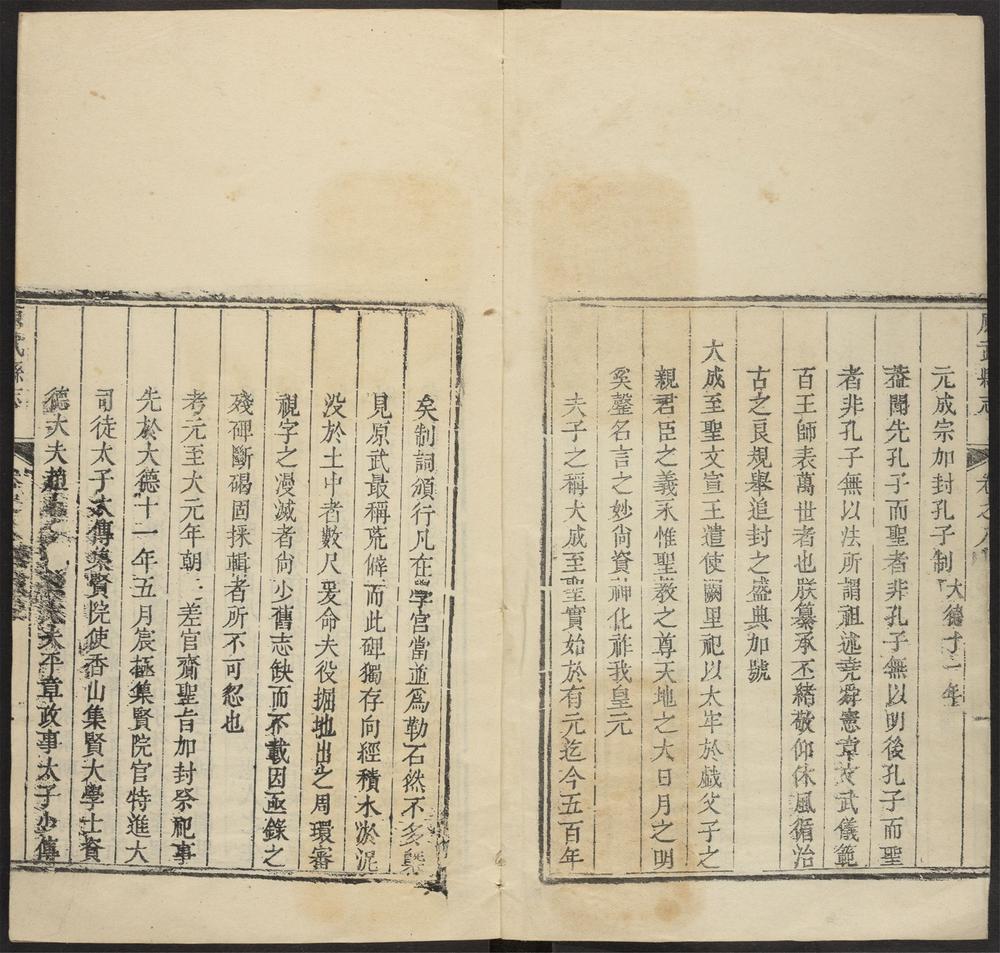 原武縣志 卷之八
元成宗加封孔子制 大德十一年
葢聞先孔子而聖者非孔子無以明後孔子而聖
者非孔子無以法所謂祖述堯舜憲章文武儀範
百王師表萬世者也朕纂承丕緒敬仰休風循治
古之良規舉追封之盛典加號
大成至聖文宣王遣使闕里祀以太牢於戲父子之
親君臣之義永惟聖教之尊天地之大日月之明
奚罄名言之妙尙資神化祚我皇元
夫子之稱大成至聖實始於有元迄今五百年
矣制詞頒行凡在學官當並爲勒石然不多槩
見原武最稱荒僻而此碑獨存向經積水淤泥
没於土中者數尺爰命夫役掘地出之周環審
視字之漫滅者尙少舊志缺而不載因亟錄之
殘碑斷碣固採輯者所不可忽也
考元至大元年朝廷差官齎聖旨加封祭祀事
先於大德十一年五月宸極集賢院官特進大
司徒太子太傅集賢院使香山集賢大學士資
德大夫趙 平章政事太子少傅
原武縣志